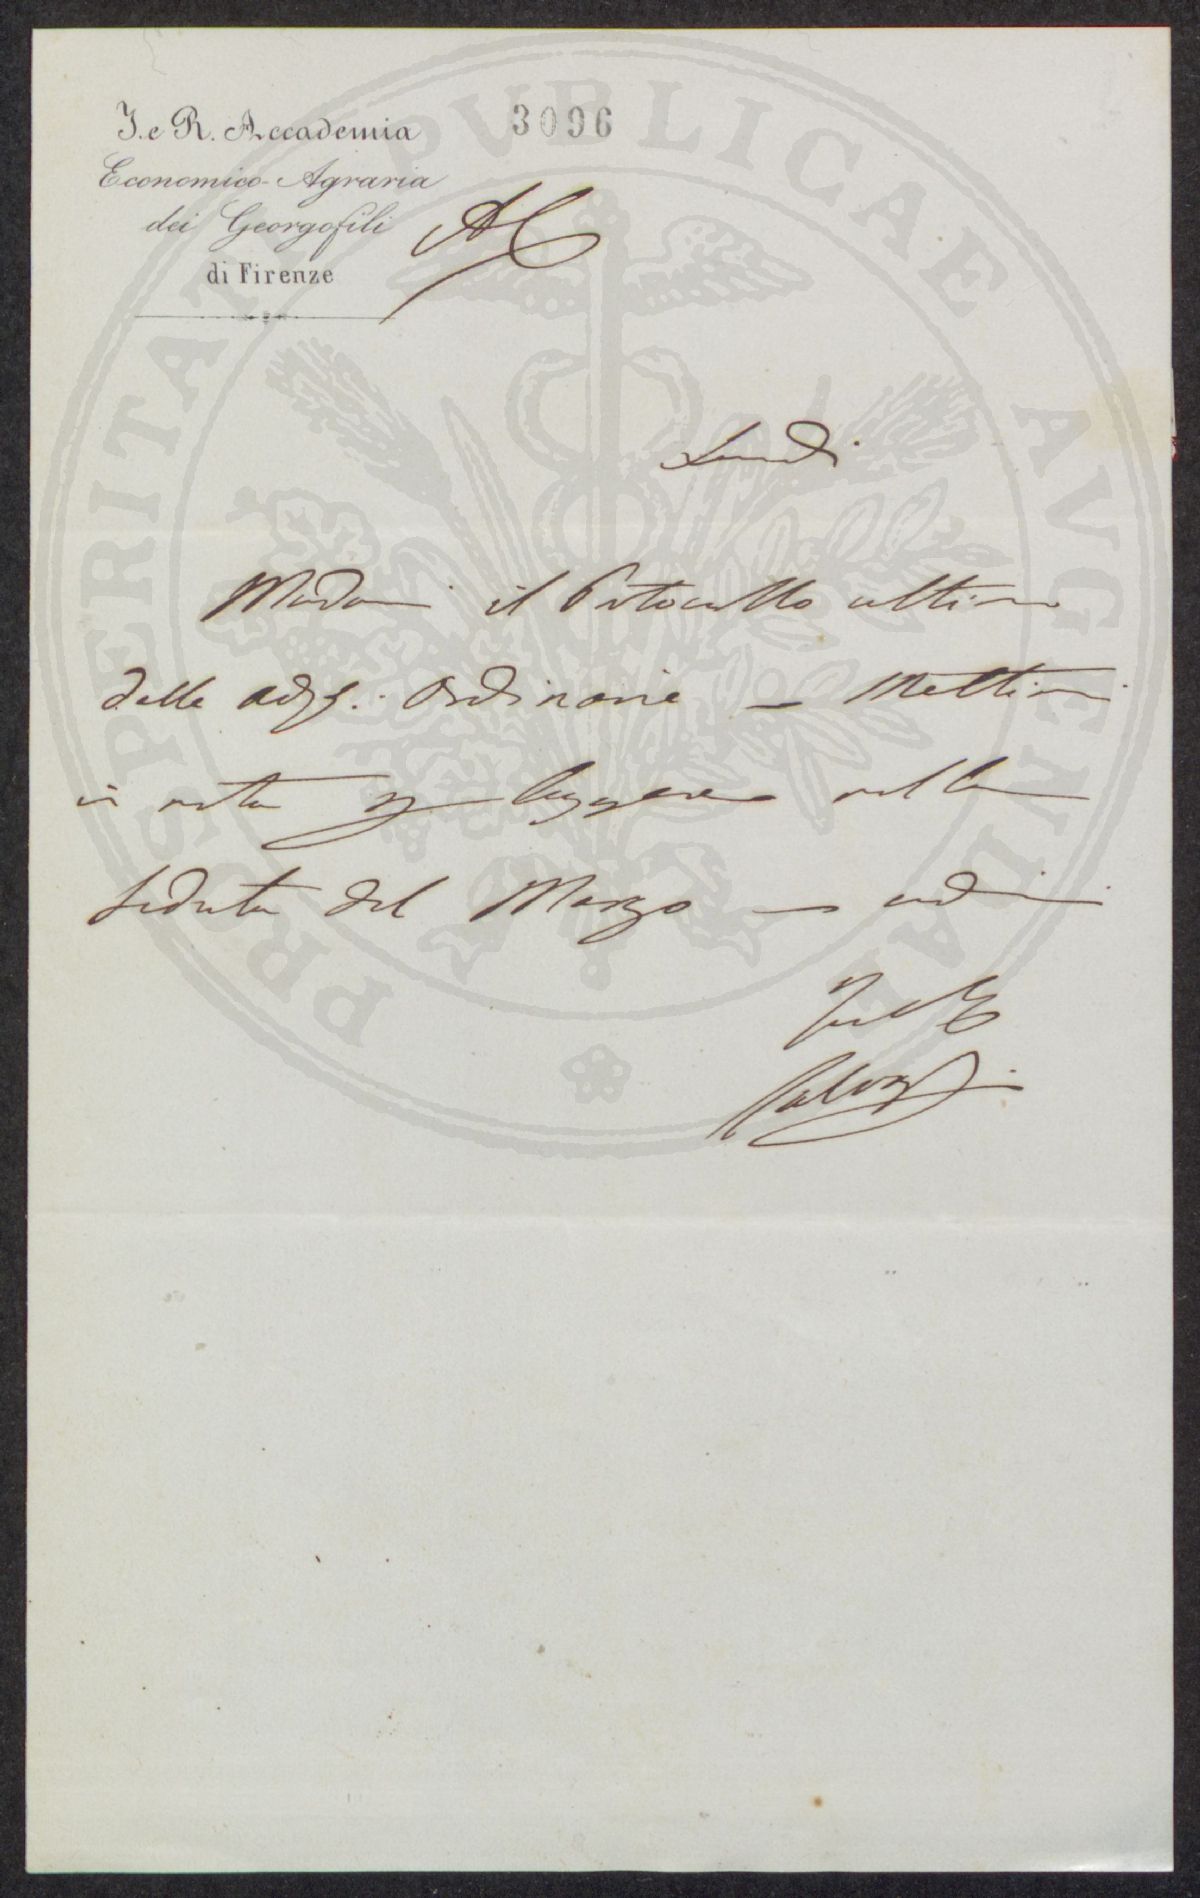 I. e R. Accademia
Economico-Agraria
dei Georgofili
di Firenze
3096
Lundi
Mandami il Protocollo ultimo
delle ad: Ordinarie — Mettimi
in nota per leggere nella
seduta del Marzo — addio
Salvagnoli
PROSPERITATI PVBLICAE AVGENDAE